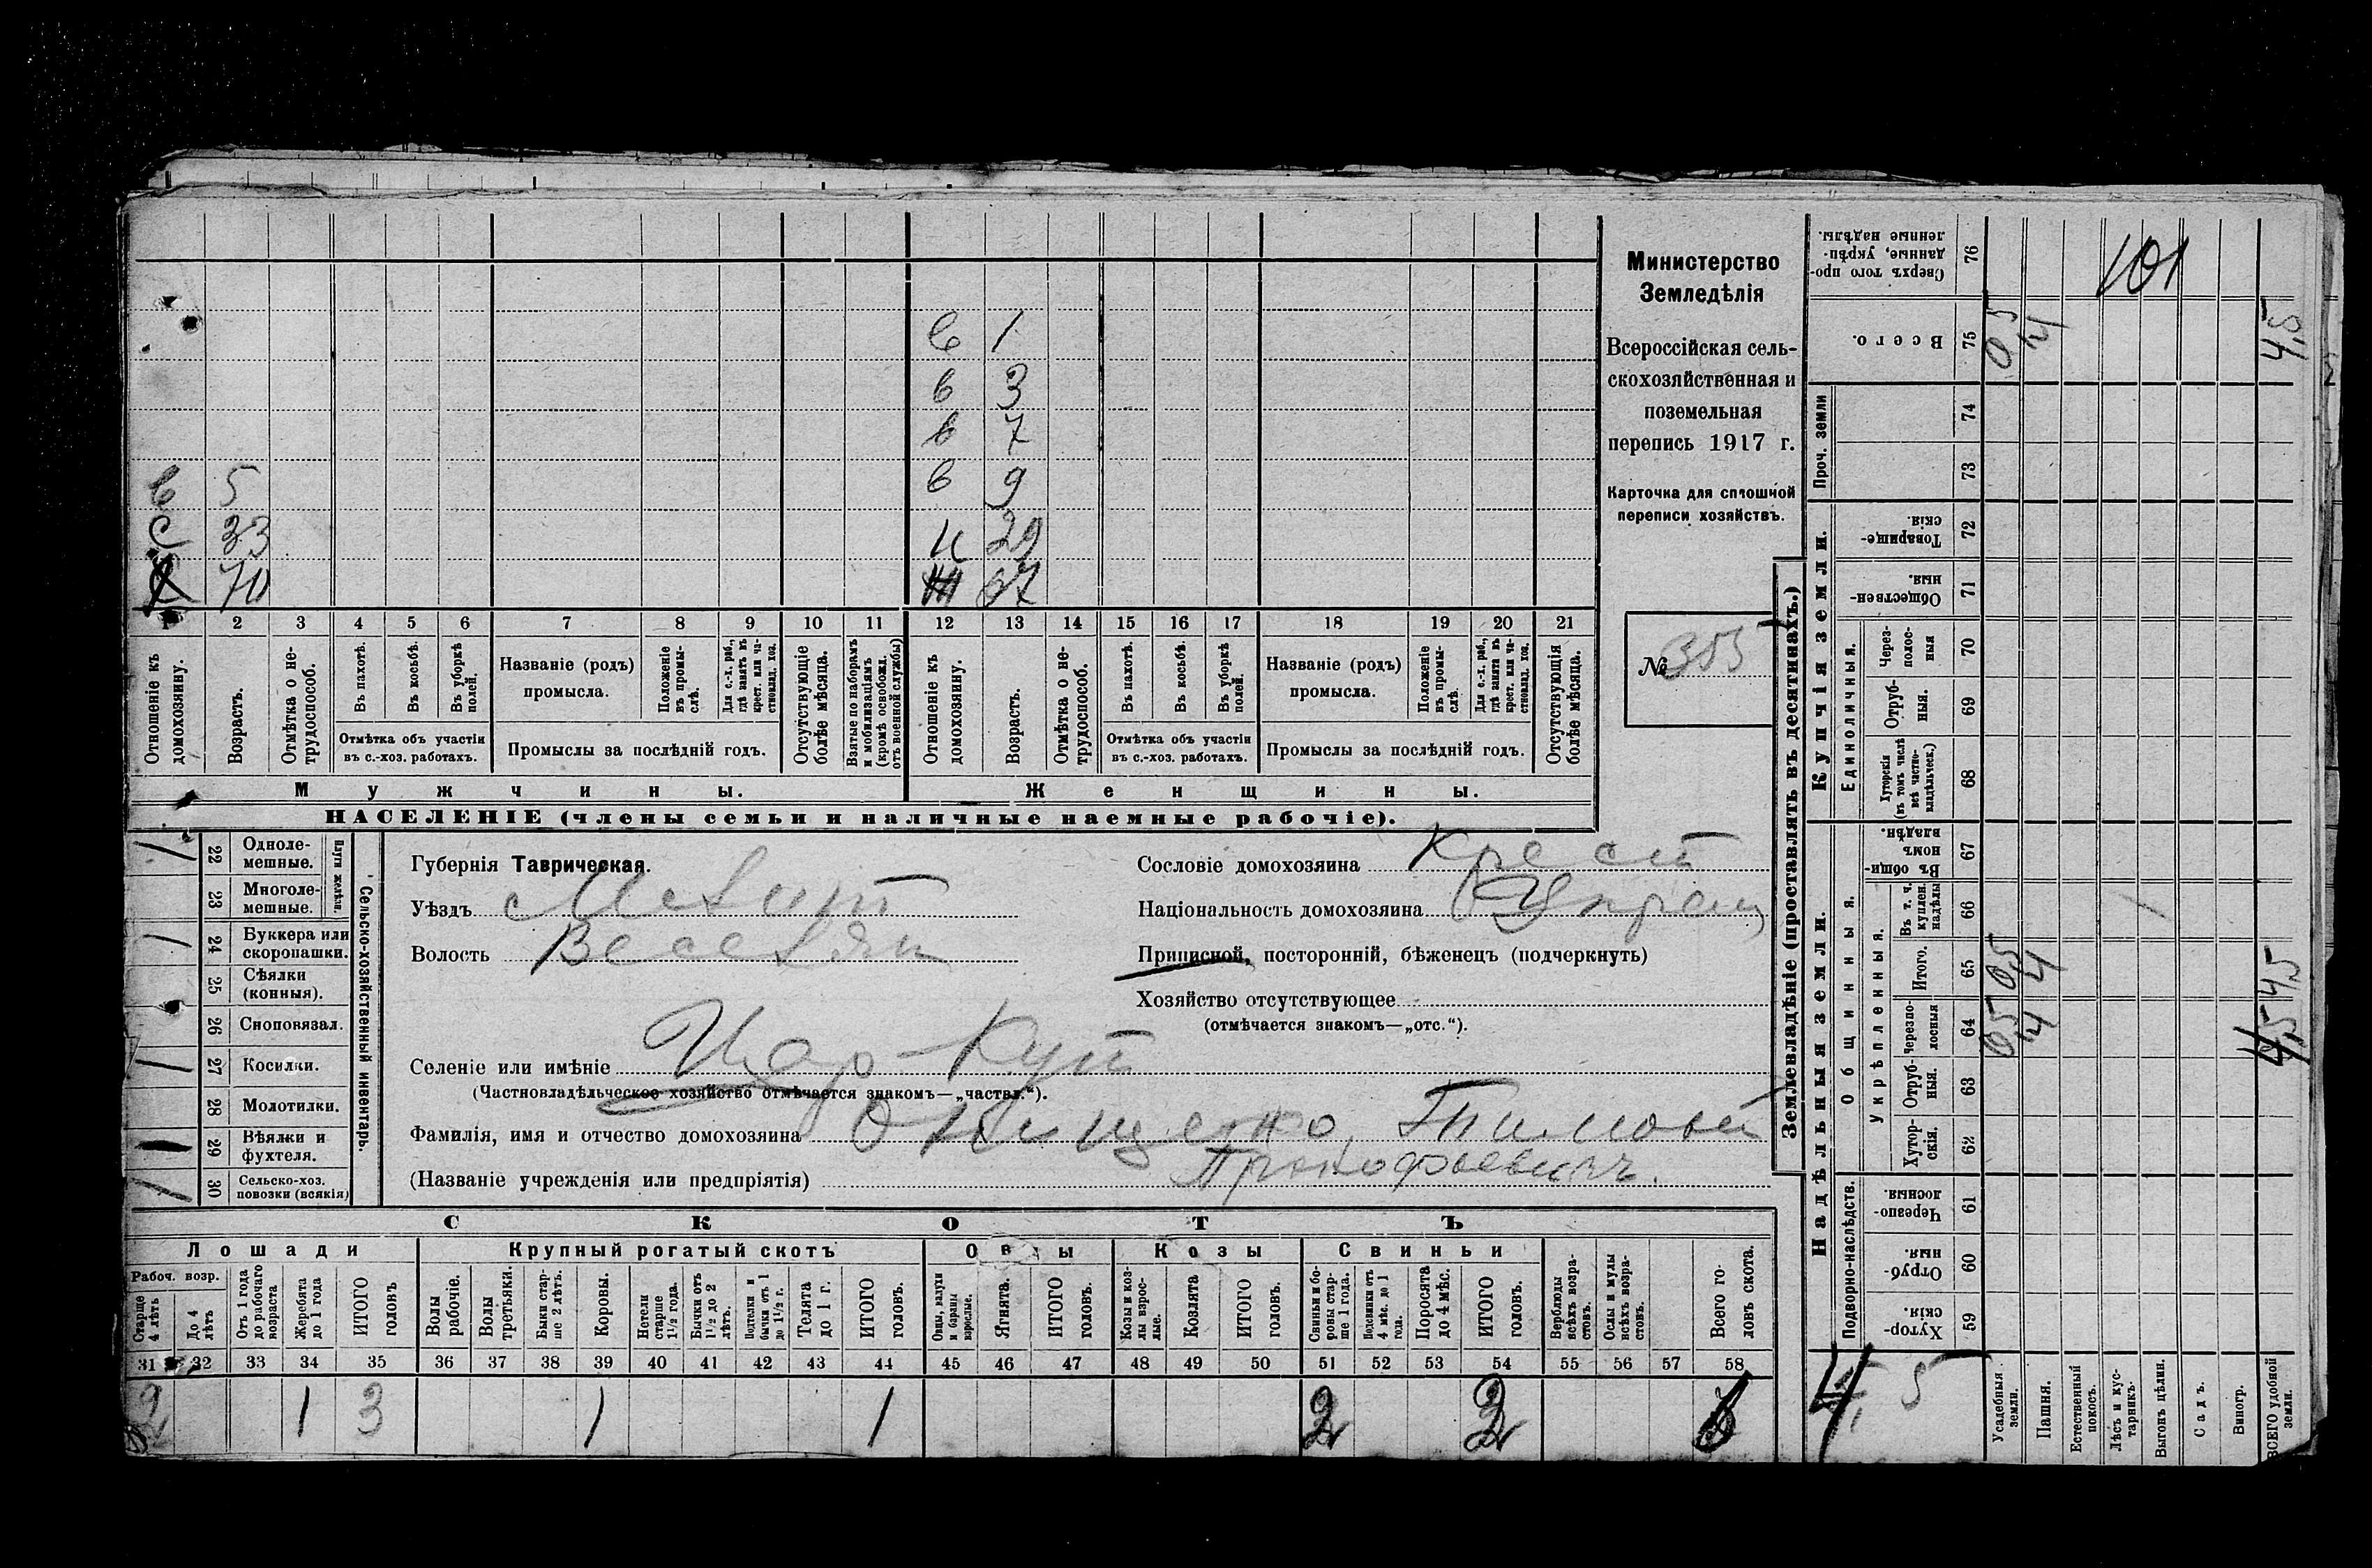 в 1
в 3
в 7
в 5 в 9
с 33 и 29
70 67
1 2 3 4 5 6 7 8 9 10 11 12 13 14 15 16 17 18 19 20 21
Отношеніе къ домохозяину.
Возрастъ.
Отмѣтка о не-
трудоспособ.
Въ пахотѣ.
Въ косьбѣ.
Въ уборкѣ полей.
Отмѣтка объ участіи
въ с.-хоз. работахъ.
Названіе (родъ)
промысла.
Положеніе въ промы-
слѣ.
Для с.-х. раб., гдѣ занятъ въ крест. или ча-
стновлад. хоз.
Промыслы за послѣдній годъ.
Отсутствующіе болѣе мѣсяца.
Взятые по наборамъ и мобилизаціямъ (кромѣ освобожд. отъ военной службы)
Отношеніе къ домохозяину.
Возрастъ.
Отмѣтка о не-
трудоспособ.
Въ пахотѣ.
Въ косьбѣ.
Въ уборкѣ полей.
Отмѣтка объ участіи
въ с.-хоз. работахъ.
Названіе (родъ)
промысла.
Положеніе въ промы-
слѣ.
Для с.-х. раб., гдѣ занята въ крест. или ча-
стновлад. хоз.
Промыслы за послѣдній годъ.
Отсутствующія болѣе мѣсяца.
Мужчины. Женщины.
НАСЕЛЕНІЕ (члены семьи и наличные наемные рабочіе).
Министерство
Земледѣлія
Всероссійская сель-
скохозяйственная и
поземельная
перепись 1917 г.
Карточка для сплошной
переписи хозяйствъ.
№ 355
1 22 Одноле-
мешные.
23 Многоле-
мешные.
Плуги желѣзн.
1 24 Буккера или
скоропашки.
25 Сѣялки
(конныя).
26 Сноповязал.
1 27 Косилки.
28 Молотилки.
1 29 Вѣялки и
фухтеля.
1 30 Сельско-хоз.
повозки (всякія)
Сельско-хозяйственный инвентарь.
Губернія Таврическая.
Уѣздъ Мелит
Волость Веселян
Сословіе домохозяина Крест
Національность домохозяина Украин
Приписной, посторонній, бѣженецъ (подчеркнуть)
Хозяйство отсутствующее
(отмѣчается знакомъ—„отс.“).
Селеніе или имѣніе Цар-Кут
(Частновладѣльческое хозяйство отмѣчается знакомъ—„частвл.“).
Фамилія, имя и отчество домохозяина Онищенко, Тимофей
(Названіе учрежденія или предпріятія) Прокофьевичъ.
СКОТЪ
Лошади Крупный рогатый скотъ Овцы Козы Свиньи
Рабоч. возр.
Старше 4 лѣтъ
До 4 лѣтъ
Отъ 1 года до рабочаго возраста
Жеребята до 1 года
ИТОГО головъ
Волы рабочіе.
Волы третьяки.
Быки стар-
ше 2 лѣтъ.
Коровы.
Нетели старше 1½ года.
Бычки отъ 1½ до 2 лѣтъ.
Подтелки и бычки отъ 1 до 1½ г.
Телята до 1 г.
ИТОГО головъ.
Овцы, валухи и бараны взрослые.
Ягнята.
ИТОГО головъ.
Козы и коз-
лы взрос-
лые.
Козлята
ИТОГО головъ.
Свиньи и бо-
ровы стар-
ше 1 года.
Подсвинки отъ 4 мѣс. до 1 года.
Поросята до 4 мѣс.
ИТОГО головъ.
Верблюды всѣхъ возра-
стовъ.
Ослы и мулы всѣхъ возра-
стовъ.
Всего го-
ловъ скота.
31 32 33 34 35 36 37 38 39 40 41 42 43 44 45 46 47 48 49 50 51 52 53 54 55 56 57 58
2 1 3 1 1 2 2 6
Землевладѣніе (проставлять въ десятинахъ.)
Надѣльныя земли. Купчія земли.
Подворно-наслѣдств.
Общинныя.
Укрѣпленныя.
Единоличныя.
Проч. земли
76 Сверхъ того про-
данные, укрѣп-
ленные надѣлы.
101
75 Всего. 0,5 4 4,5
74
73
72 Товарище-
скія.
71 Обществен-
ныя.
70 Через-
полос-
ныя
69 Отруб-
ныя.
68 Хуторскія (въ томъ числѣ всѣ частно-
владѣльческ.)
67 Въ общин-
номъ
владѣн.
66 Въ т. ч. куплен. надѣлы
65 Итого. 0,5 4 4,5
64 Черезпо-
лосныя 0,5 4 4,5
63 Отруб-
ныя.
62 Хутор-
скія.
61 Черезпо-
лосныя.
60 Отруб-
ныя.
59 Хутор-
скія.
4,5
Усадебныя земли.
Пашня.
Естественный покосъ.
Лѣсъ и кус-
тарникъ.
Выгонъ цѣлин.
Садъ.
Виногр.
ВСЕГО удобной земли.